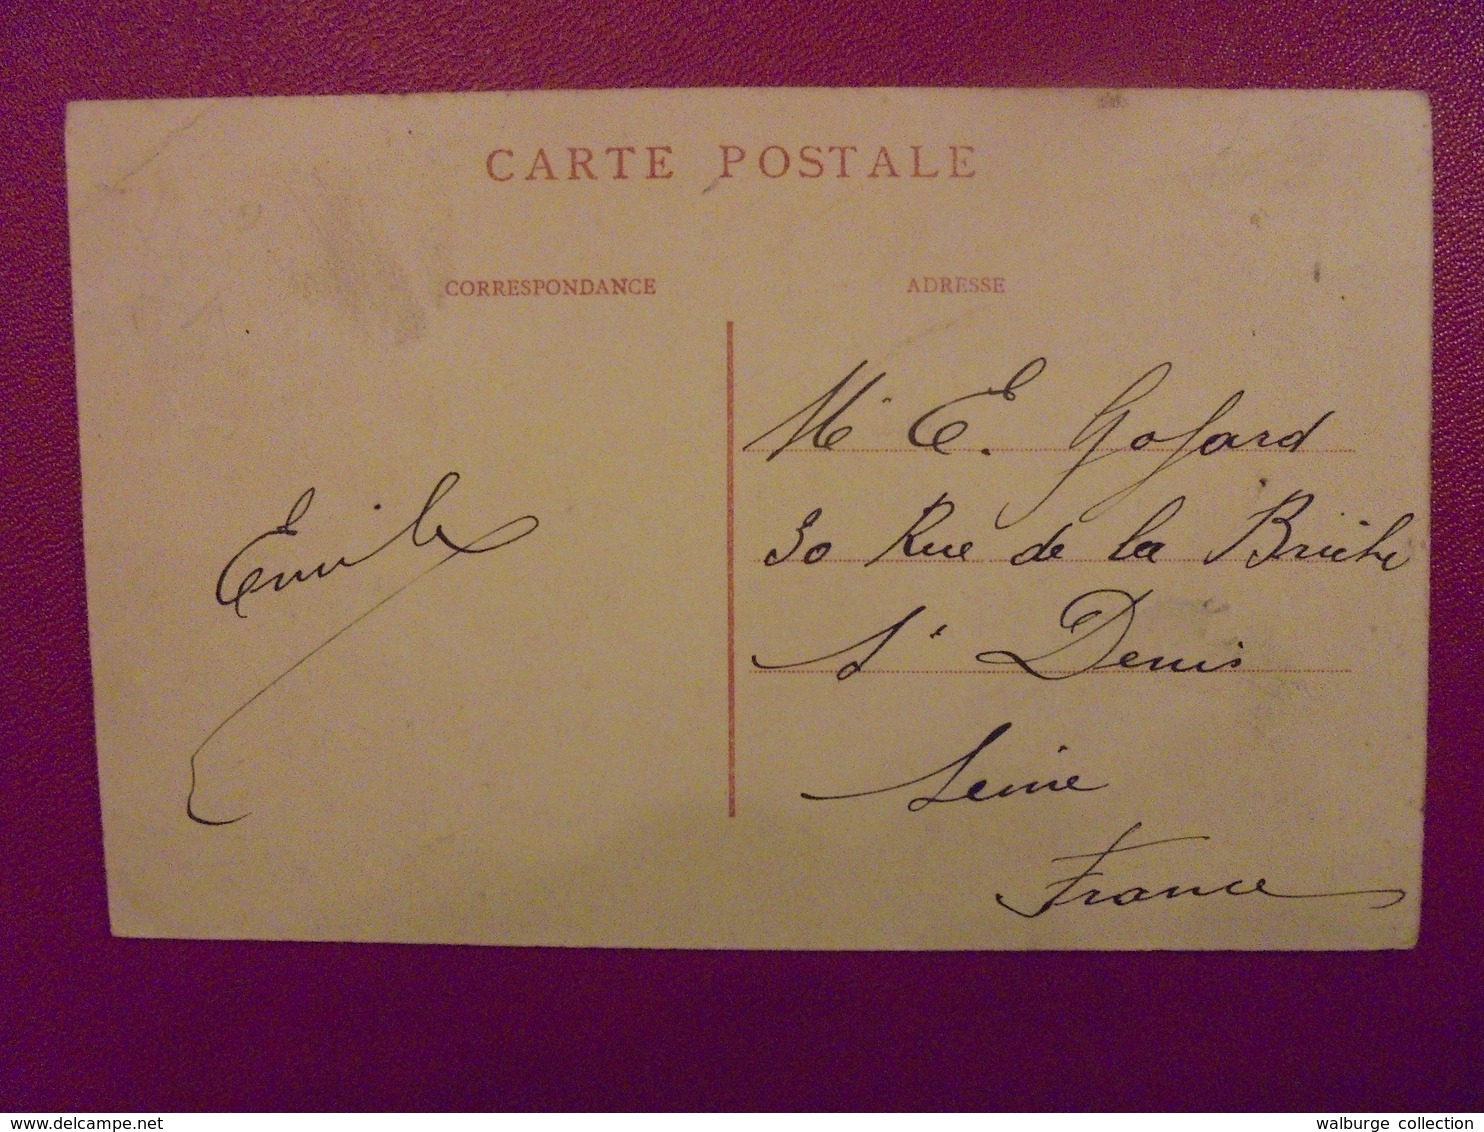 CARTE POSTALE
CORRESPONDANCE
ADRESSE
Mr E. Gofard
30 Rue de la Briche
St Denis
Seine
France
Emile
walburge collection